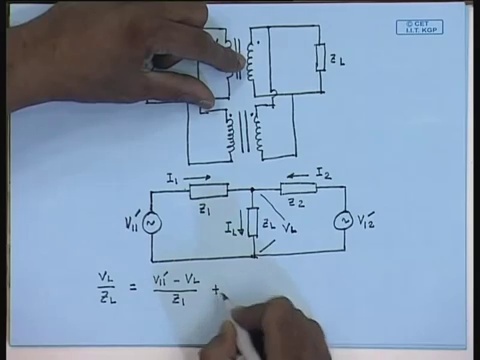 © CET
I.I.T. KGP
ZL
I1
I2
Z1
Z2
V11'
IL
ZL
VL
V12'
VL/ZL = (V11' - VL)/Z1 +